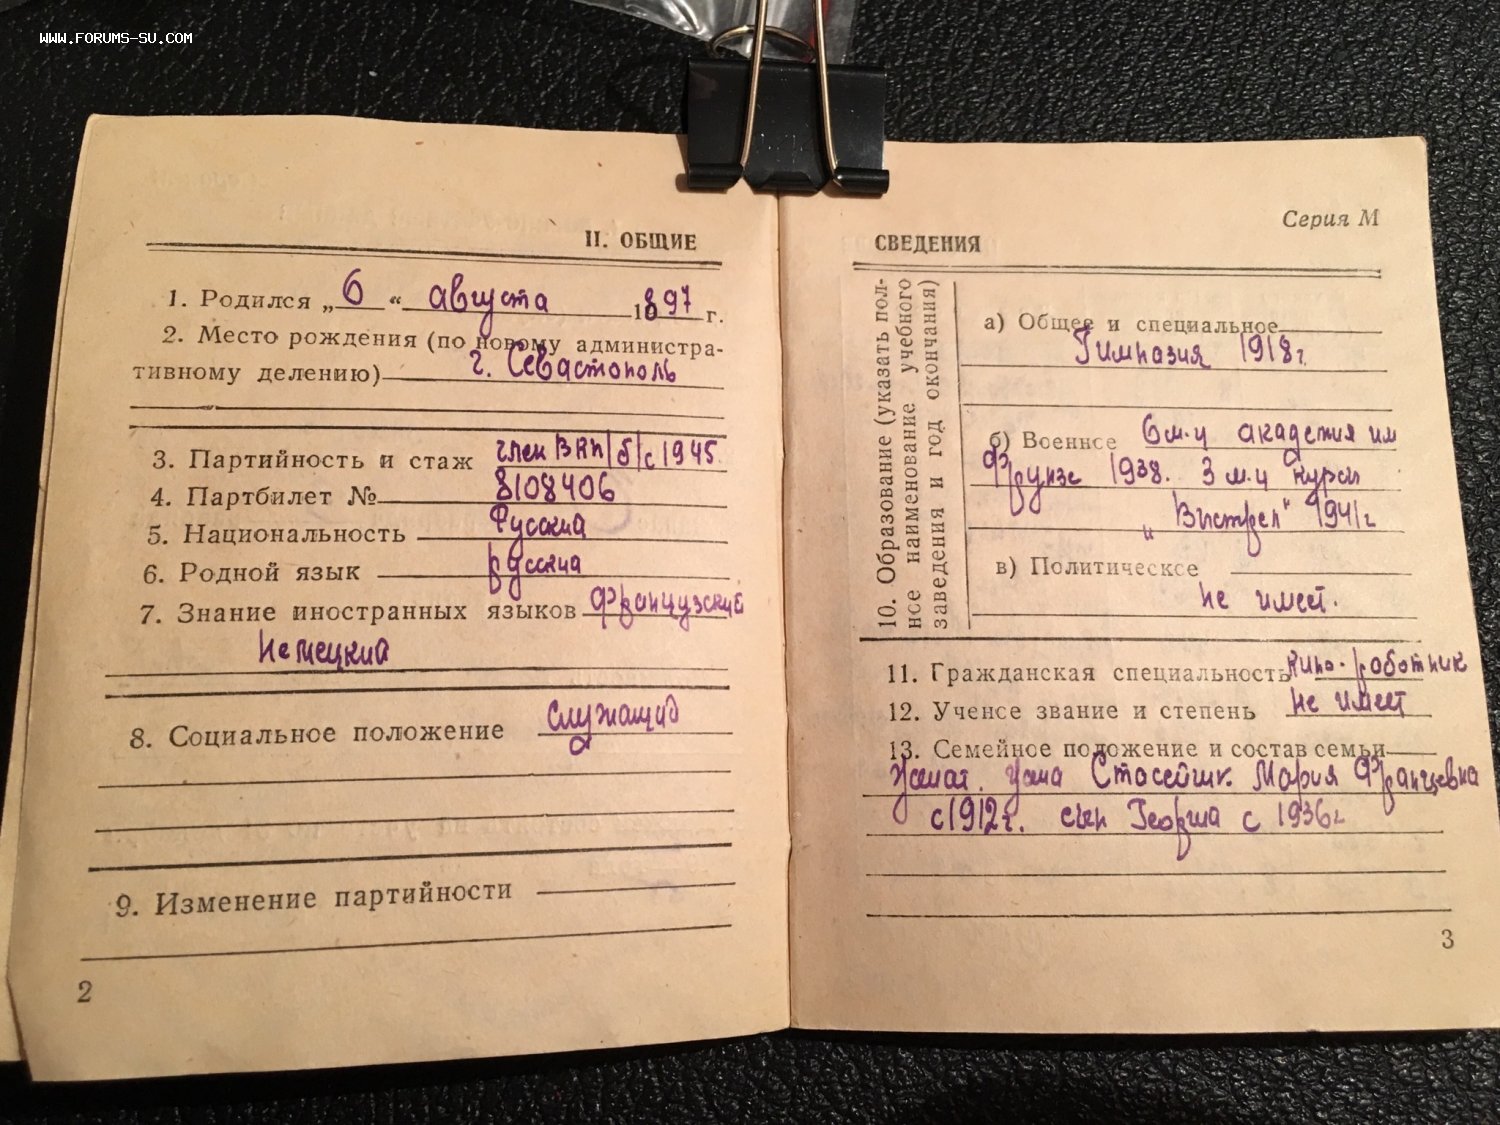 WWW.FORUMS-SU.COM
II. ОБЩИЕ
1. Родился „6“ августа 1897 г.
2. Место рождения (по новому администра-
тивному делению) г. Севастополь
3. Партийность и стаж член ВКП/б/с 1945
4. Партбилет № 8108406
5. Национальность Русский
6. Родной язык русский
7. Знание иностранных языков французский
немецкий
8. Социальное положение служащий
9. Изменение партийности
2
Серия М
СВЕДЕНИЯ
10. Образование (указать пол-
ное наименование учебного
заведения и год окончания)
а) Общее и специальное
Гимназия 1918г.
б) Военное 6 м-ц академия им
Фрунзе 1938. 3 м-ц курсы
„Выстрел“ 1941г
в) Политическое
не имеет.
11. Гражданская специальность кино-работник
12. Ученое звание и степень не имеет
13. Семейное положение и состав семьи
Женат. жена Стасейшк. Мария Францевна
с 1912г. сын Георгий с 1936г
3